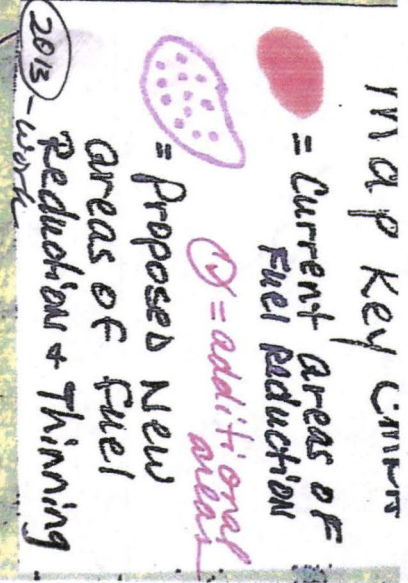 Map Key
= Current areas of
Fuel Reduction
= additional
areas
= Proposed New
areas of Fuel
Reduction + Thinning
2013 - Work